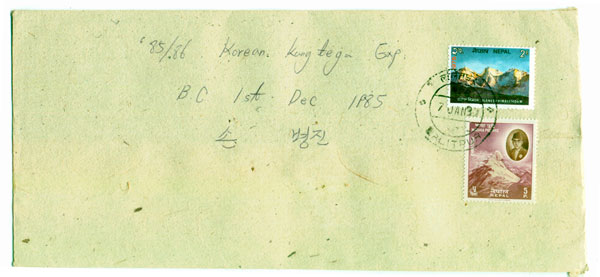 '85/86 Korean Kungtega Exp.
B.C 1st. Dec 1985
손 병진
नेपाल NEPAL
LALITPUR
नेपाल
NEPAL